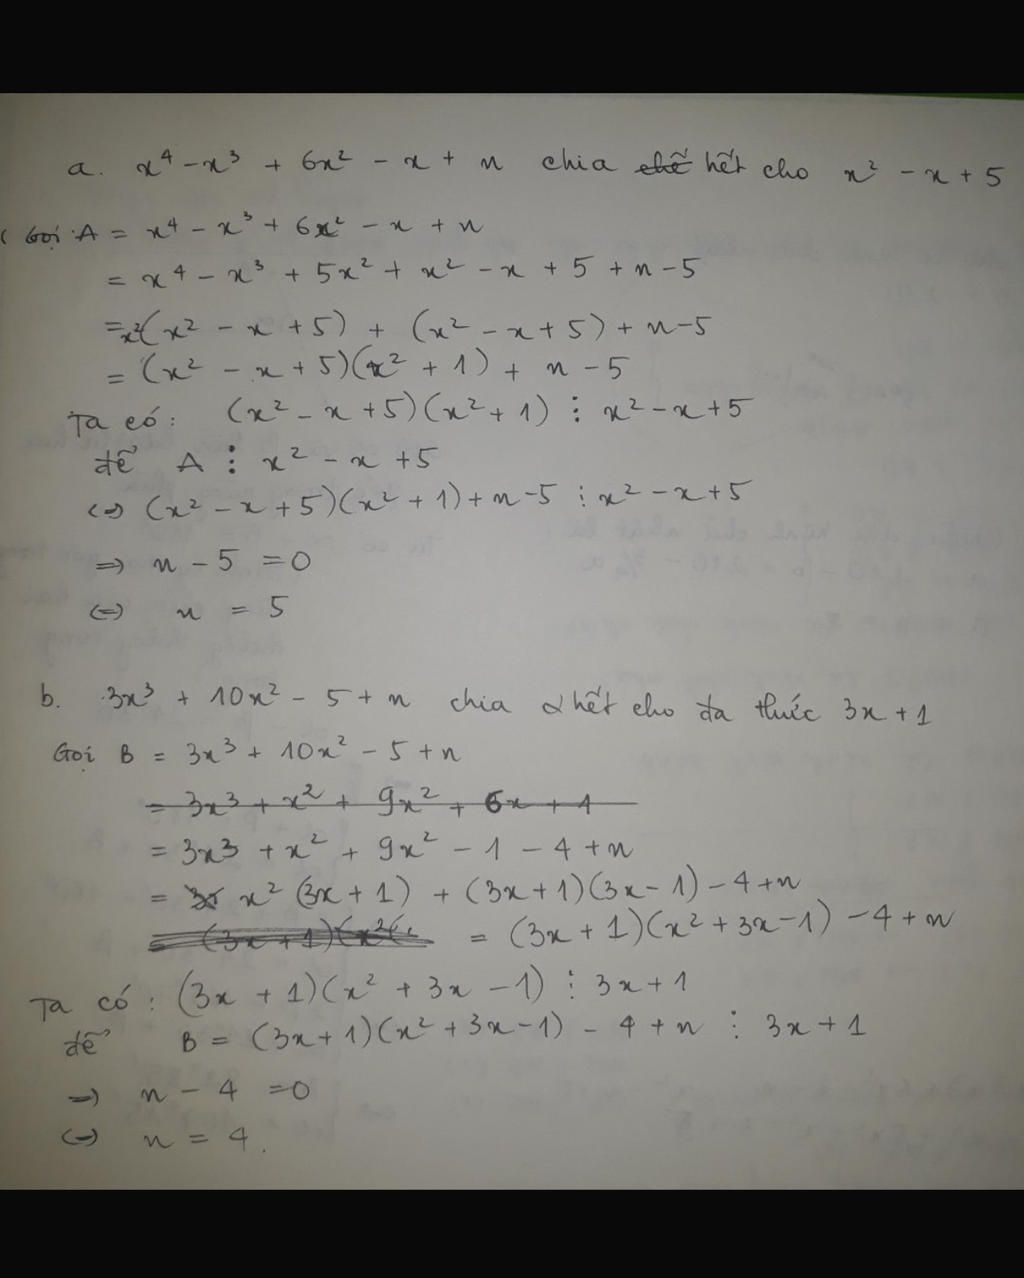 a. x⁴ - x³ + 6x² - x + n chia hết cho x² - x + 5
Gọi A = x⁴ - x³ + 6x² - x + n
= x⁴ - x³ + 5x² + x² - x + 5 + n - 5
= x²(x² - x + 5) + (x² - x + 5) + n - 5
= (x² - x + 5)(x² + 1) + n - 5
Ta có: (x² - x + 5)(x² + 1) ⋮ x² - x + 5
để A ⋮ x² - x + 5
<=> (x² - x + 5)(x² + 1) + n - 5 ⋮ x² - x + 5
=> n - 5 = 0
<=> n = 5
b. 3x³ + 10x² - 5 + n chia hết cho đa thức 3x + 1
Gọi B = 3x³ + 10x² - 5 + n
= 3x³ + x² + 9x² + 6x + 1
= 3x³ + x² + 9x² - 1 - 4 + n
= x² (3x + 1) + (3x + 1)(3x - 1) - 4 + n
= (3x + 1)(x²( = (3x + 1)(x² + 3x - 1) - 4 + n
Ta có: (3x + 1)(x² + 3x - 1) ⋮ 3x + 1
để B = (3x + 1)(x² + 3x - 1) - 4 + n ⋮ 3x + 1
=> n - 4 = 0
<=> n = 4.